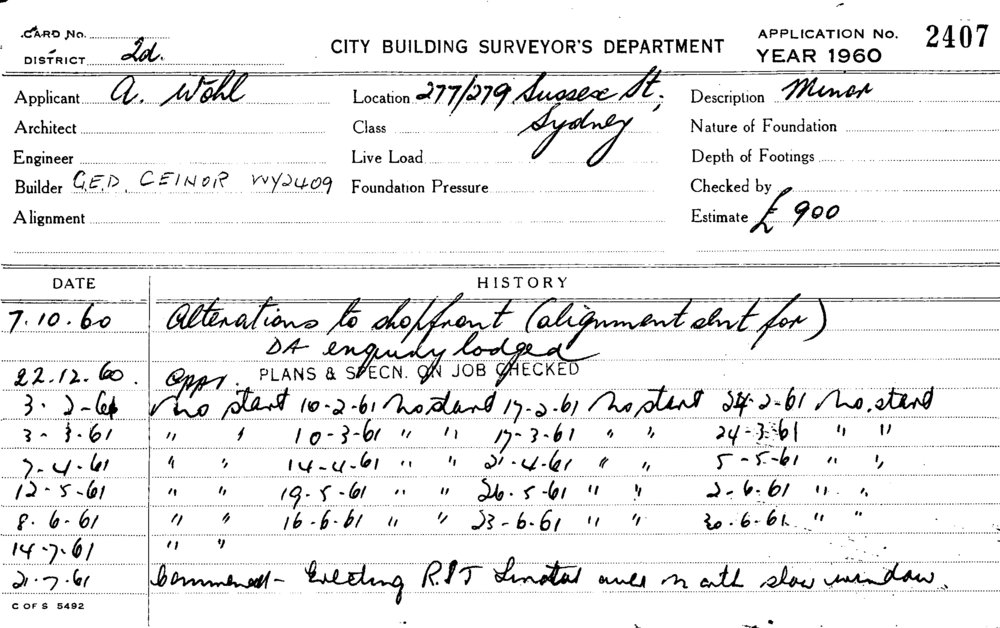 CARD No.
DISTRICT 2d.
CITY BUILDING SURVEYOR'S DEPARTMENT
APPLICATION No. 2407
YEAR 1960
Applicant A. Wohl Location 277/279 Sussex St, Description Minor
Architect Class Sydney Nature of Foundation
Engineer Live Load Depth of Footings
Builder G.E.D. CEINOR WY2409 Foundation Pressure Checked by
Alignment Estimate £ 900
DATE HISTORY
7.10.60 Alterations to shopfront (alignment sent for)
DA enquiry lodged
22.12.60. Appr. PLANS & SPECN. ON JOB CHECKED
3-2-61 No start 10-2-61 No start 17-2-61 No start 24-2-61 No start
3-3-61 " " 10-3-61 " " 17-3-61 " " 24-3-61 " "
7-4-61 " " 14-4-61 " " 21-4-61 " " 5-5-61 " "
12-5-61 " " 19-5-61 " " 26.5-61 " " 2-6-61 " "
8.6-61 " " 16-6-61 " " 23-6-61 " " 30.6-61 " "
14-7.61 " "
21-7.61 Commenced - Erecting over north window.
C OF S 5492